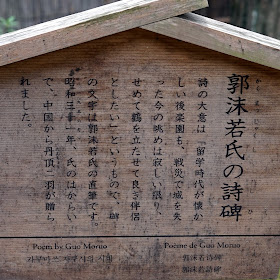 郭沫若氏の詩碑
詩の大意は「留学時代が懐か
しい後楽園も、戦災で城を失
った今の眺めは寂しい限り、
せめて鶴を立たせて良き伴侶
としたい」というもので、碑
の文字は郭沫若氏の直筆です。
昭和三十一年、氏のはからい
で、中国から丹頂二羽が贈ら
れました。
Poem by Guo Moruo
Poème de Guo Moruo
郭沫若诗碑
郭沫若詩碑